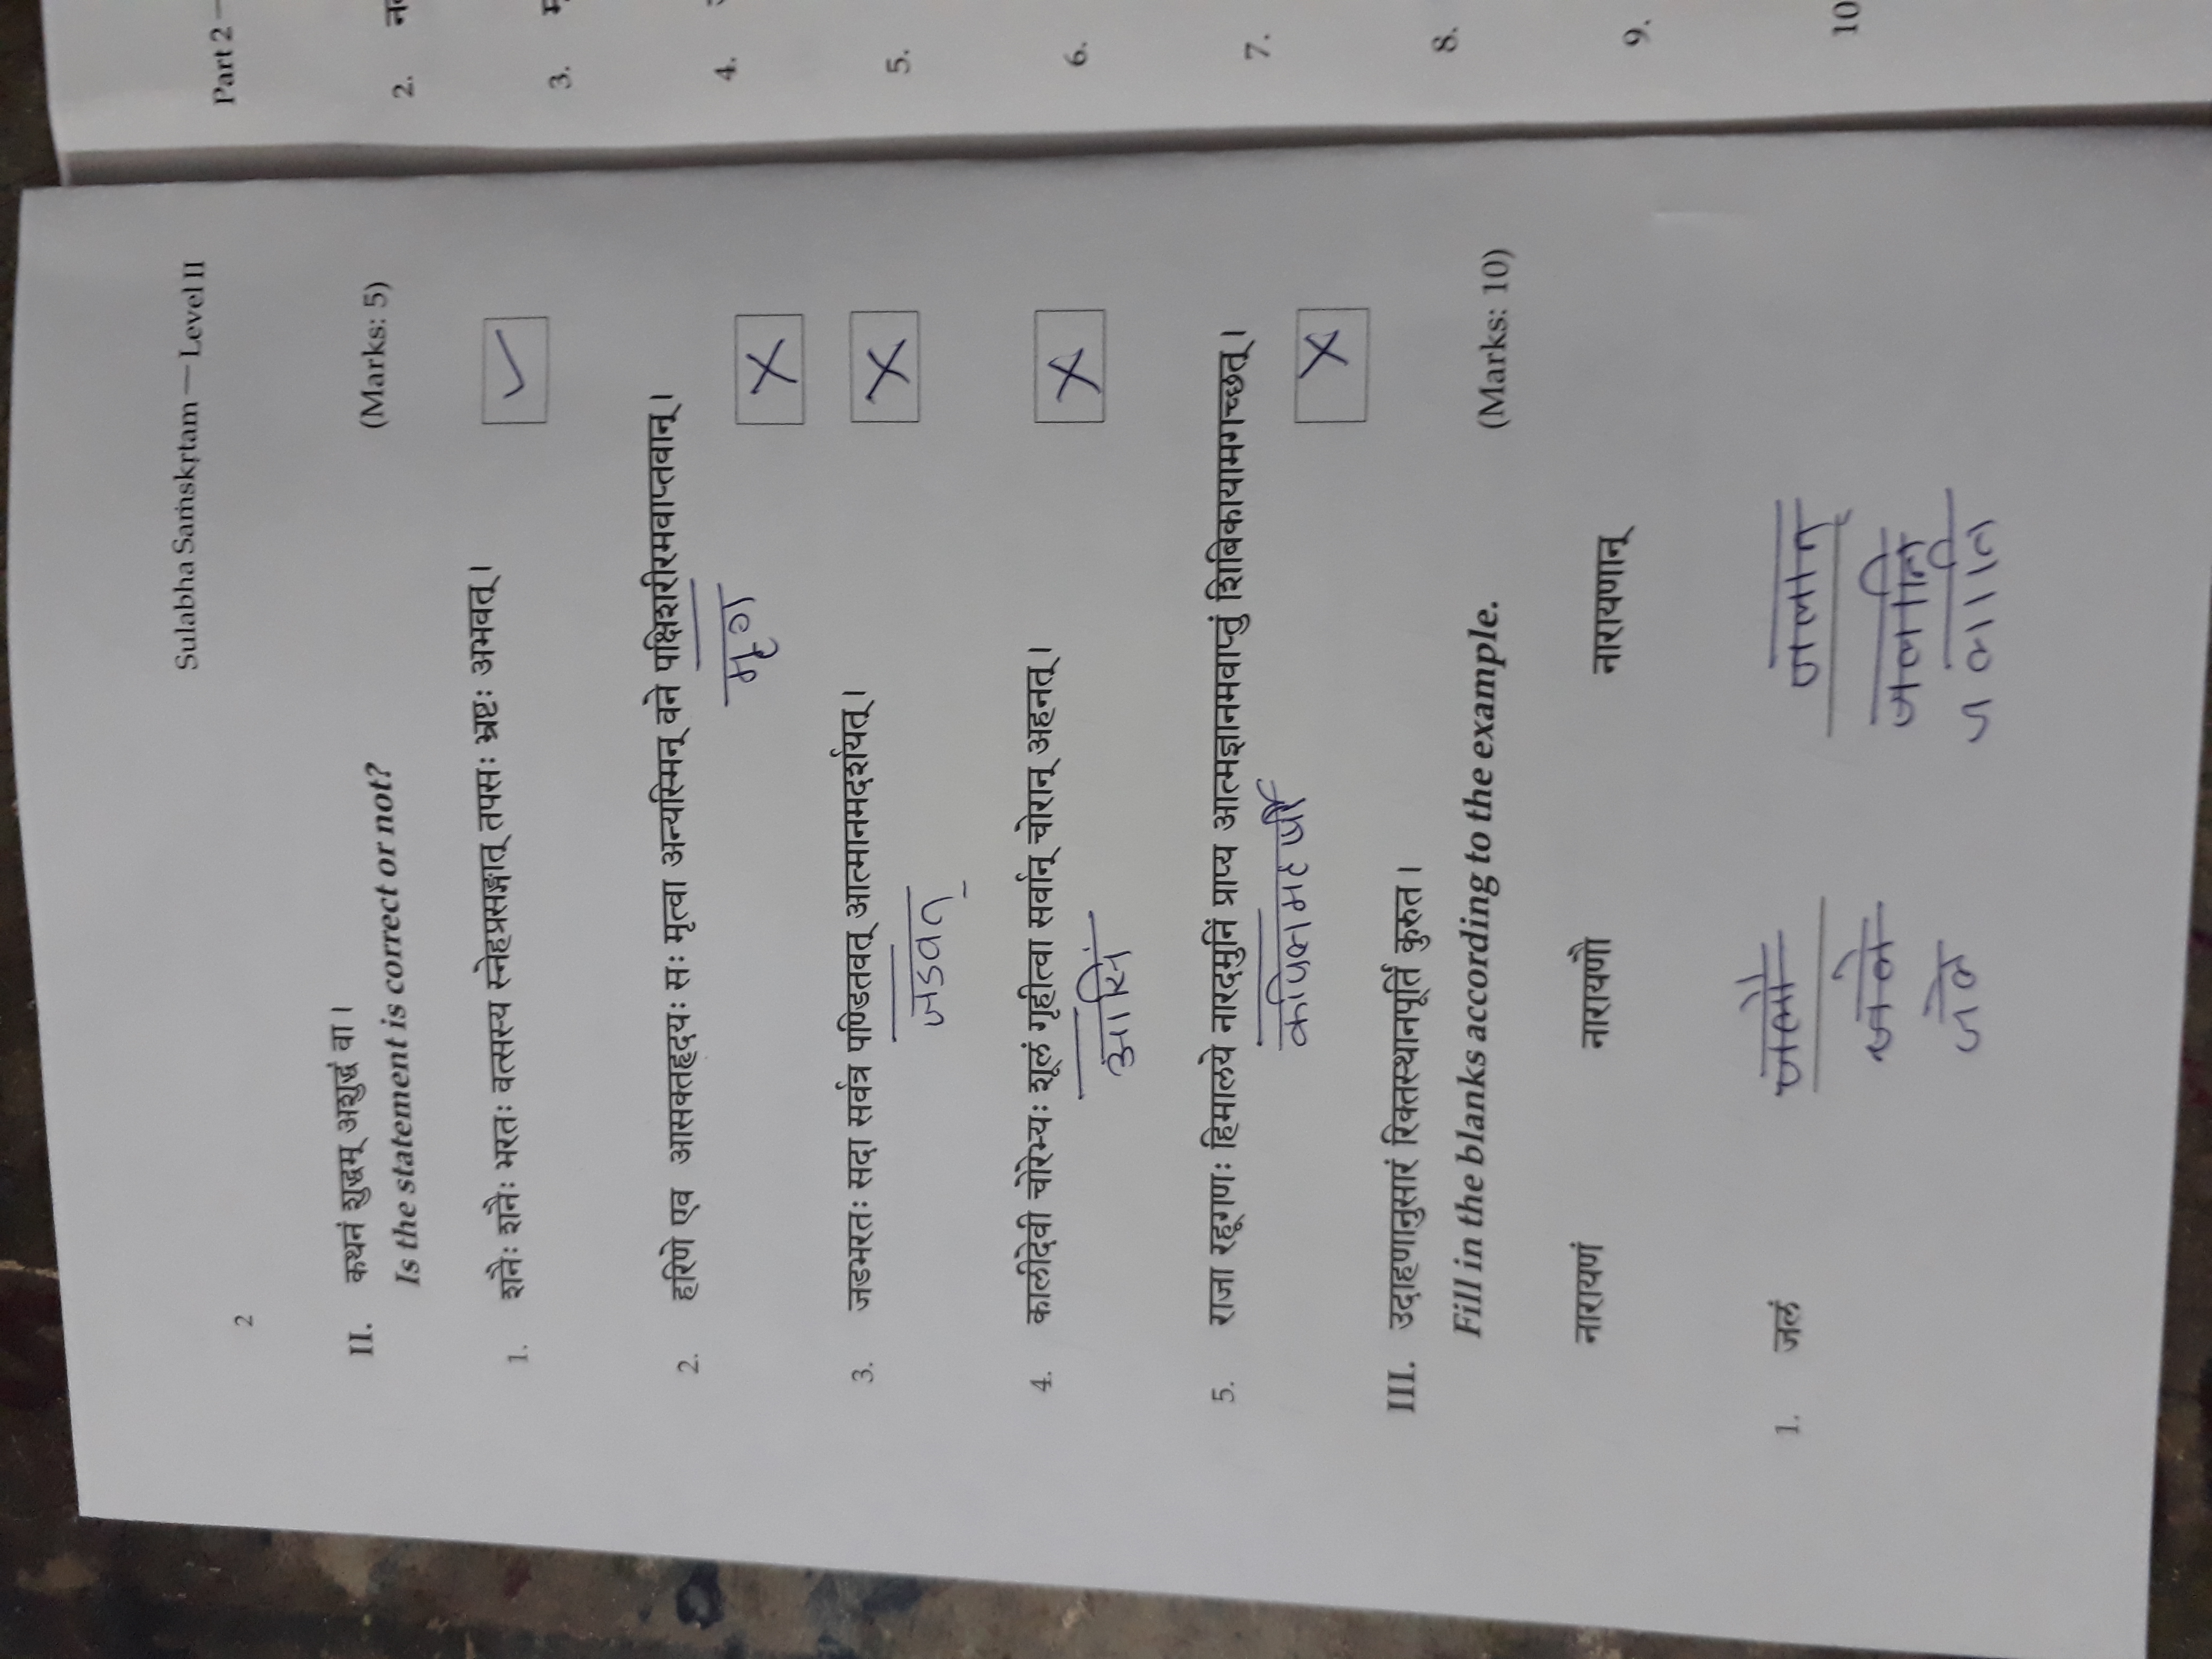 Sulabha Saṁskṛtam — Level II
2
II. कथनं शुद्धम् अशुद्धं वा।
Is the statement is correct or not? (Marks: 5)
1. शनैः शनैः भरतः वत्सस्य स्नेहप्रसङ्गात् तपसः भ्रष्टः अभवत्। ✓
2. हरिणे एव आसक्तहृदयः सः मृत्वा अन्यस्मिन् वने पक्षिशरीरमवाप्तवान्।
मृग
X
3. जडभरतः सदा सर्वत्र पण्डितवत् आत्मानमदर्शयत्। X
जडवत्
4. कालीदेवी चोरेभ्यः शूलं गृहीत्वा सर्वान् चोरान् अहनत्। X
आसिं
5. राजा रहूगणः हिमालये नारदमुनिं प्राप्य आत्मज्ञानमवाप्तुं शिबिकायामगच्छत्।
कपिलमहर्षी
X
III. उदाहणानुसारं रिक्तस्थानपूर्तिं कुरुत।
Fill in the blanks according to the example. (Marks: 10)
नारायणं नारायणौ नारायणान्
1. जलं जलौ जलान्
जले जलानि
जले जलानि
Part 2 —
2.
3.
4.
5.
6.
7.
8.
9.
10